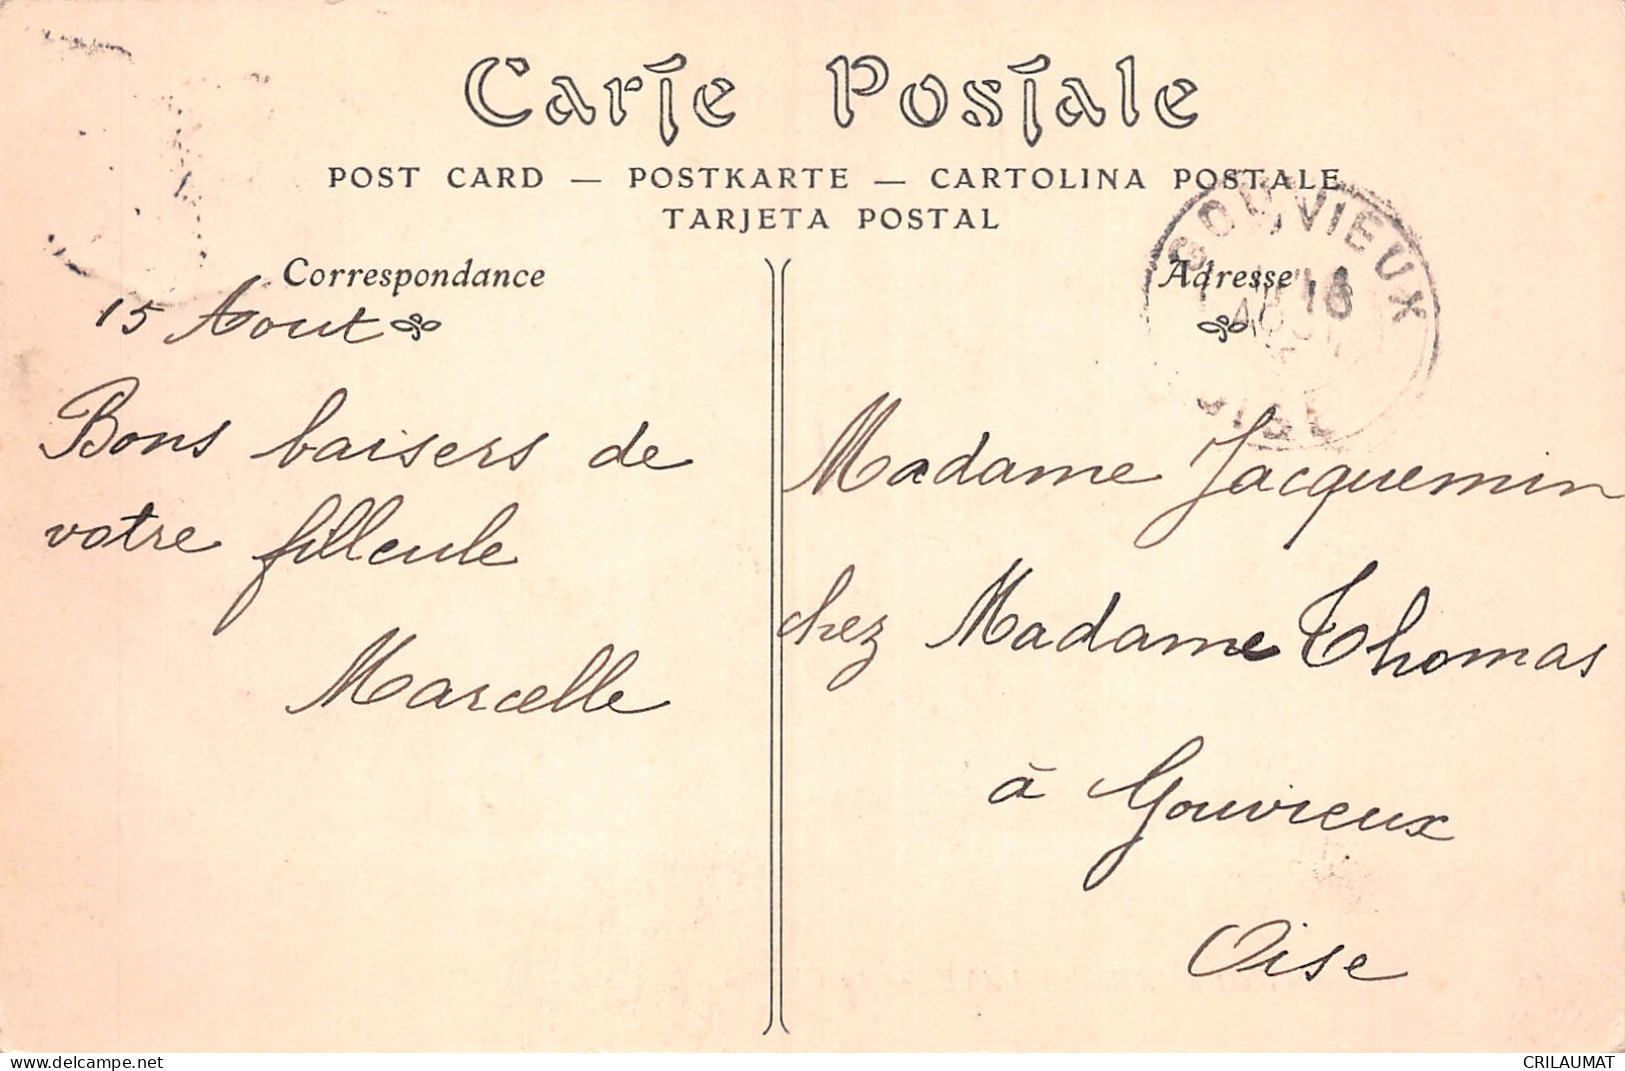 Carte Postale
POST CARD — POSTKARTE — CARTOLINA POSTALE
TARJETA POSTAL
Correspondance
Adresse
GOUVIEUX
OISE
15 Aout
Bons baisers de
votre fillcule
Marcelle
Madame Jacquemin
chez Madame Thomas
à Gouvieux
Oise
www.delcampe.net
CRILAUMAT